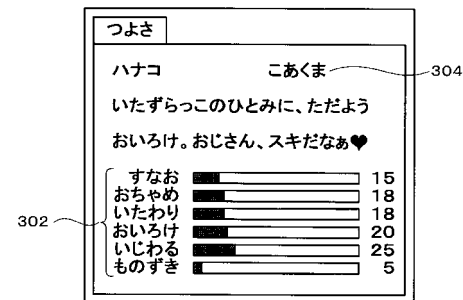 つよさ
ハナコ こあくま 304
いたずらっこのひとみに、ただよう
おいろけ。おじさん、スキだなぁ♥
302
すなお 15
おちゃめ 18
いたわり 18
おいろけ 20
いじわる 25
ものずき 5